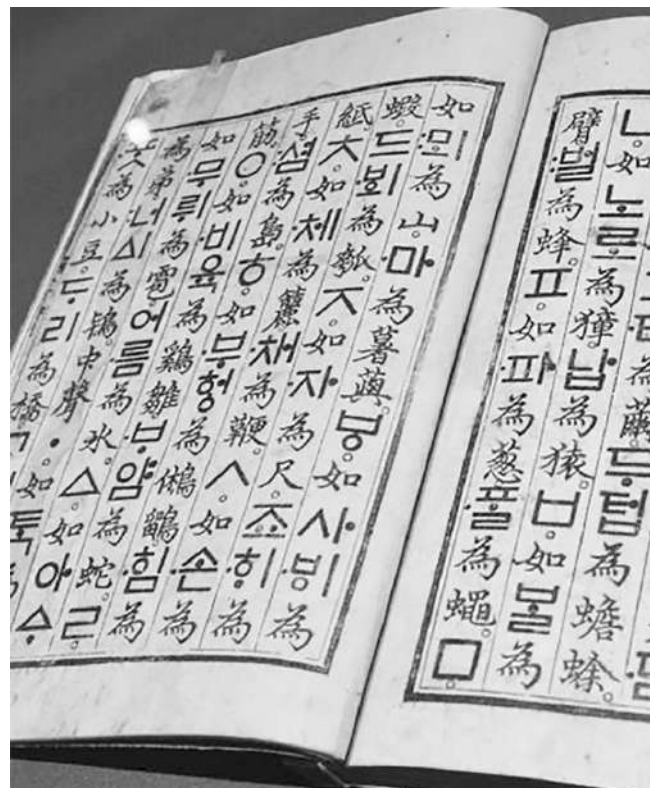 為繭。두텁為蟾蜍。
ㄴ。如노로為獐。납為猿。ㅂ。如ᄇᆞᆯ為
臂。:벌為蜂。ㅍ。如·파為葱。·ᄑᆞᆯ為蠅。ㅁ。
如:뫼為山。·마為薯藇。ㅸ。如사·ᄫᅵ為
蝦。드·ᄫᅴ為瓠。ㅈ。如·자為尺。죠·ᄒᆡ為
紙。ㅊ。如·체為籭。·채為鞭。ㅅ。如·손為
手。:셤為島。ㅎ。如·부헝為鵂鶹。·힘為
筋。ㅇ。如·비육為鷄雛。·ᄇᆞ얌為蛇。ㄹ。
如·무뤼為雹。어·름為氷。ㅿ。如아ᅀᆞ
為弟。:너ᅀᅵ為鴇。中聲ㆍ。如·ᄐᆞᆨ
·ᄑᆞᆺ為小豆。ᄃᆞ리為橋。